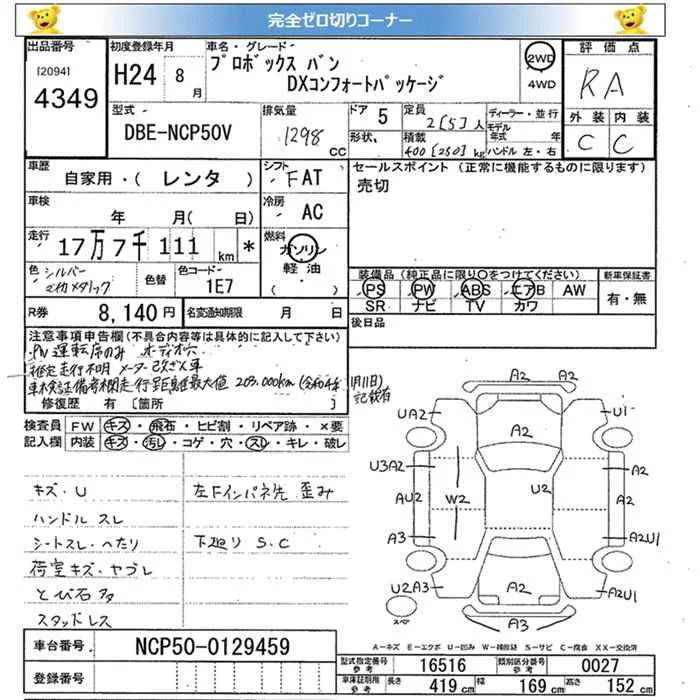 完全ゼロ切りコーナー
出品番号
(2094)
4349
初度登録年月
H24 8月
車名・グレード
プロボックス バン
DXコンフォートパッケージ
2WD
4WD
評価点
RA
外装 内装
C C
型式
DBE-NCP50V
排気量
1298 CC
ドア 5
形状
定員 2[5]人
積載 400[250]kg
ディーラー・並行
モデル年式 年
ハンドル 左・右
車歴
自家用・(レンタ)
シフト FAT
セールスポイント(正常に機能するものに限ります)
売切
車検
年 月( 日)
冷房 AC
走行
17万7千111km *
燃料
ガソリン
軽油
( )
色 シルバーマイカメタリック
色替
色コード 1E7
装備品(純正品に限り○をつけてください)
PS PW ABS エアB AW
SR ナビ TV カワ
新車保証書
有・無
R券 8,140円
名変通知期限 月 日
後日品
注意事項申告欄(不具合内容等は具体的に記入して下さい)
PW運転席のみ オーディオ穴
推定走行不明 メーター改ざん車
車検証備考欄走行距離最大値203,000km(令和4年1月11日)記載有
修復歴 有 [箇所
検査員 FW キズ・飛石・ヒビ割・リペア跡・×要
記入欄 内装 キズ・汚れ・コゲ・穴・スレ・キレ・破レ
キズ・U 左Fインパネ先 歪み
ハンドル スレ
シートスレ・へたり 下廻り S.C
荷室キズ・ヤブレ
とび石多
スタッドレス
A2
A2
UA2 U1
A2
U3A2 A2
W2 U2
AU2 A2
A3 A2U1
U2A3 A2 A2U1
スペア
A3
A-キズ E-エクボ U-凹み W-補修跡 S-サビ C-腐食 XX-交換済
車台番号 NCP50-0129459
登録番号
型式指定番号 参考 16516 類別区分番号 参考 0027
車庫証明用 参考 長さ 419cm 幅 169cm 高さ 152cm